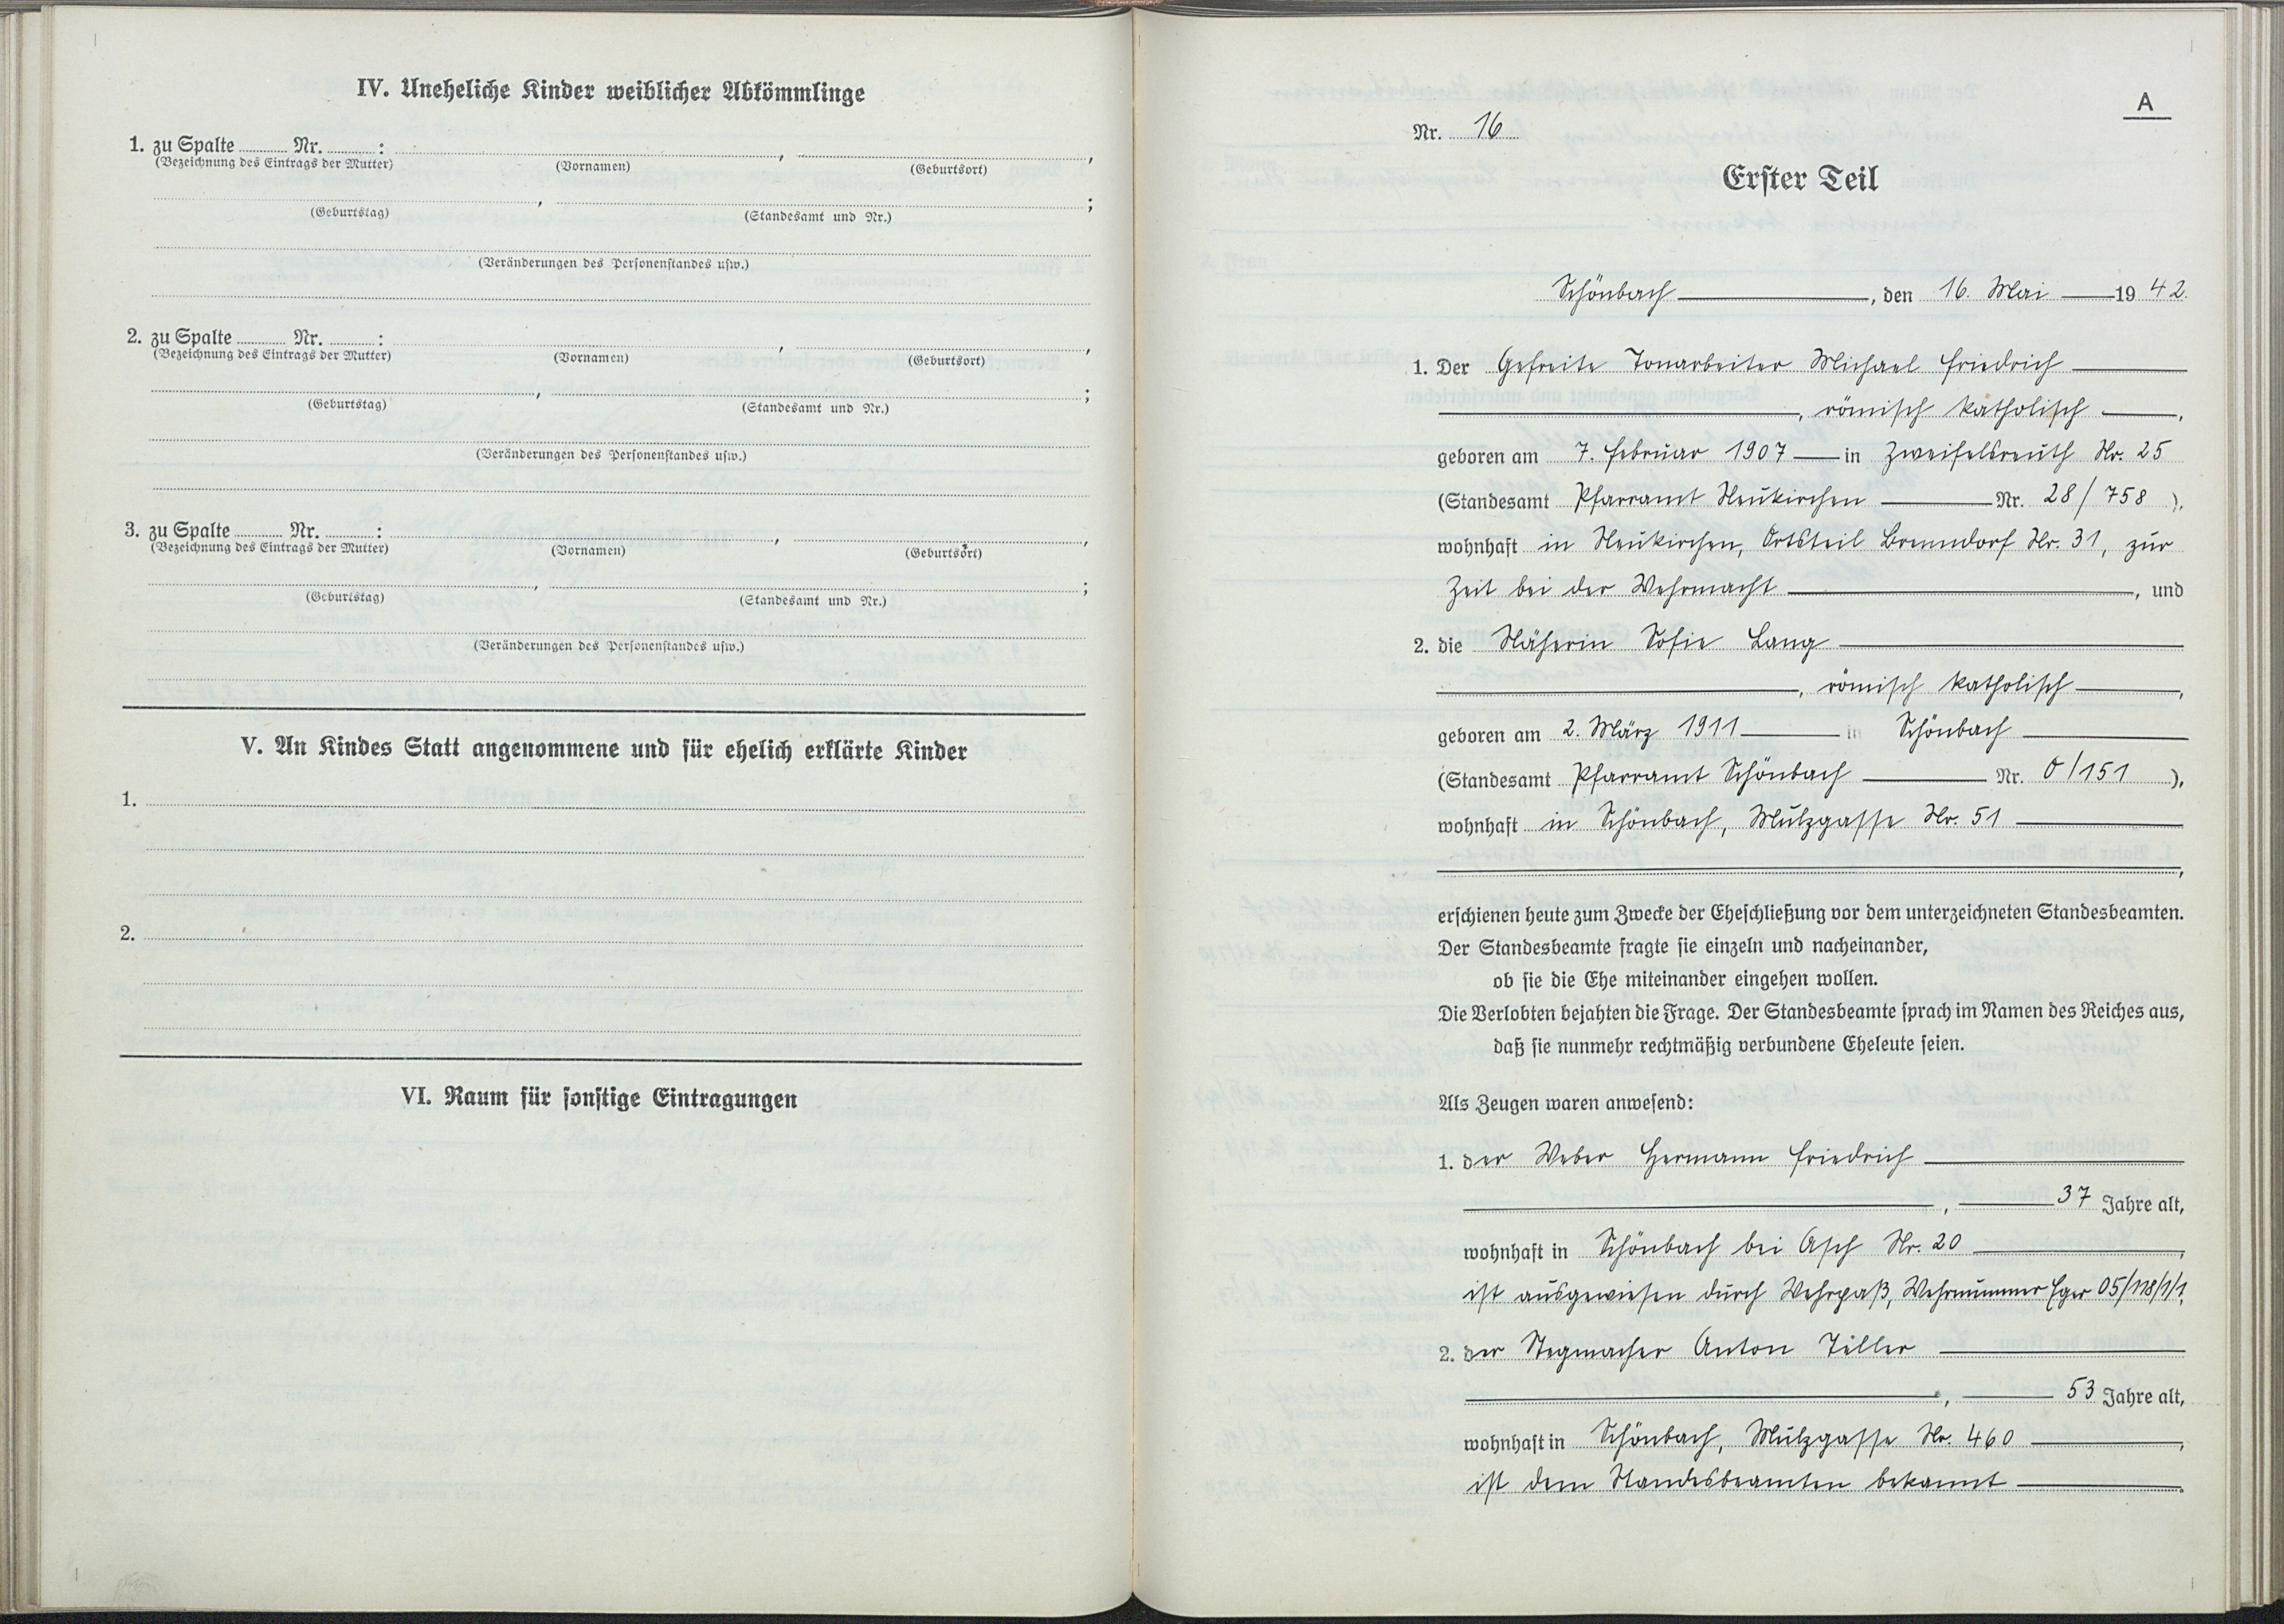 IV. Uneheliche Kinder weiblicher Abkömmlinge
1. zu Spalte ........ Nr. ........ : ........, ........,
(Bezeichnung des Eintrags der Mutter) (Vornamen) (Geburtsort)
........, ........;
(Geburtstag) (Standesamt und Nr.)
(Veränderungen des Personenstandes usw.)
2. zu Spalte ........ Nr. ........ : ........, ........,
(Bezeichnung des Eintrags der Mutter) (Vornamen) (Geburtsort)
........, ........;
(Geburtstag) (Standesamt und Nr.)
(Veränderungen des Personenstandes usw.)
3. zu Spalte ........ Nr. ........ : ........, ........,
(Bezeichnung des Eintrags der Mutter) (Vornamen) (Geburtsort)
........, ........;
(Geburtstag) (Standesamt und Nr.)
(Veränderungen des Personenstandes usw.)
V. An Kindes Statt angenommene und für ehelich erklärte Kinder
1.
2.
VI. Raum für sonstige Eintragungen
A
Nr. 16
Erster Teil
Schönbach, den 16. Mai 1942.
1. Der Gefreite Tonarbeiter Michael Friedrich
, römisch katholisch,
geboren am 7. Februar 1907 in Zweifelsreuth Nr. 25
(Standesamt Pfarramt Neukirchen Nr. 28/758),
wohnhaft in Neukirchen, Ortsteil Brenndorf Nr. 31, zur
Zeit bei der Wehrmacht, und
2. die Näherin Sofie Lang
, römisch katholisch,
geboren am 2. März 1911 in Schönbach
(Standesamt Pfarramt Schönbach Nr. O/151),
wohnhaft in Schönbach, Mulzgasse Nr. 51
,
erschienen heute zum Zwecke der Eheschließung vor dem unterzeichneten Standesbeamten.
Der Standesbeamte fragte sie einzeln und nacheinander,
ob sie die Ehe miteinander eingehen wollen.
Die Verlobten bejahten die Frage. Der Standesbeamte sprach im Namen des Reiches aus,
daß sie nunmehr rechtmäßig verbundene Eheleute seien.
Als Zeugen waren anwesend:
1. der Weber Hermann Friedrich
, 37 Jahre alt,
wohnhaft in Schönbach bei Asch Nr. 20,
ist ausgewiesen durch Wehrpaß, Wehrnummer Eger 05/118/1/1.
2. der Stegmacher Anton Tiller
, 53 Jahre alt,
wohnhaft in Schönbach, Mulzgasse Nr. 460,
ist dem Standesbeamten bekannt.